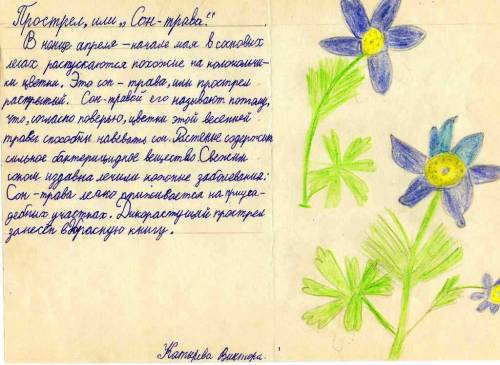 Прострел, или „Сон-трава“.
В конце апреля - начале мая в сосновых
лесах распускаются похожие на колокольчи-
ки цветки. Это сон - трава, или прострел
раскрытый. Сон-травой его называют потому,
что, согласно поверью, цветки этой весенней
травы способны навевать сон. Растение содержит
сильное бактерицидное вещество. Свежим
соком издавна лечили кожные заболевания.
Сон - трава легко приживается на приуса-
дебных участках. Дикорастущий прострел
занесён в Красную книгу.
Катырева Виктория.